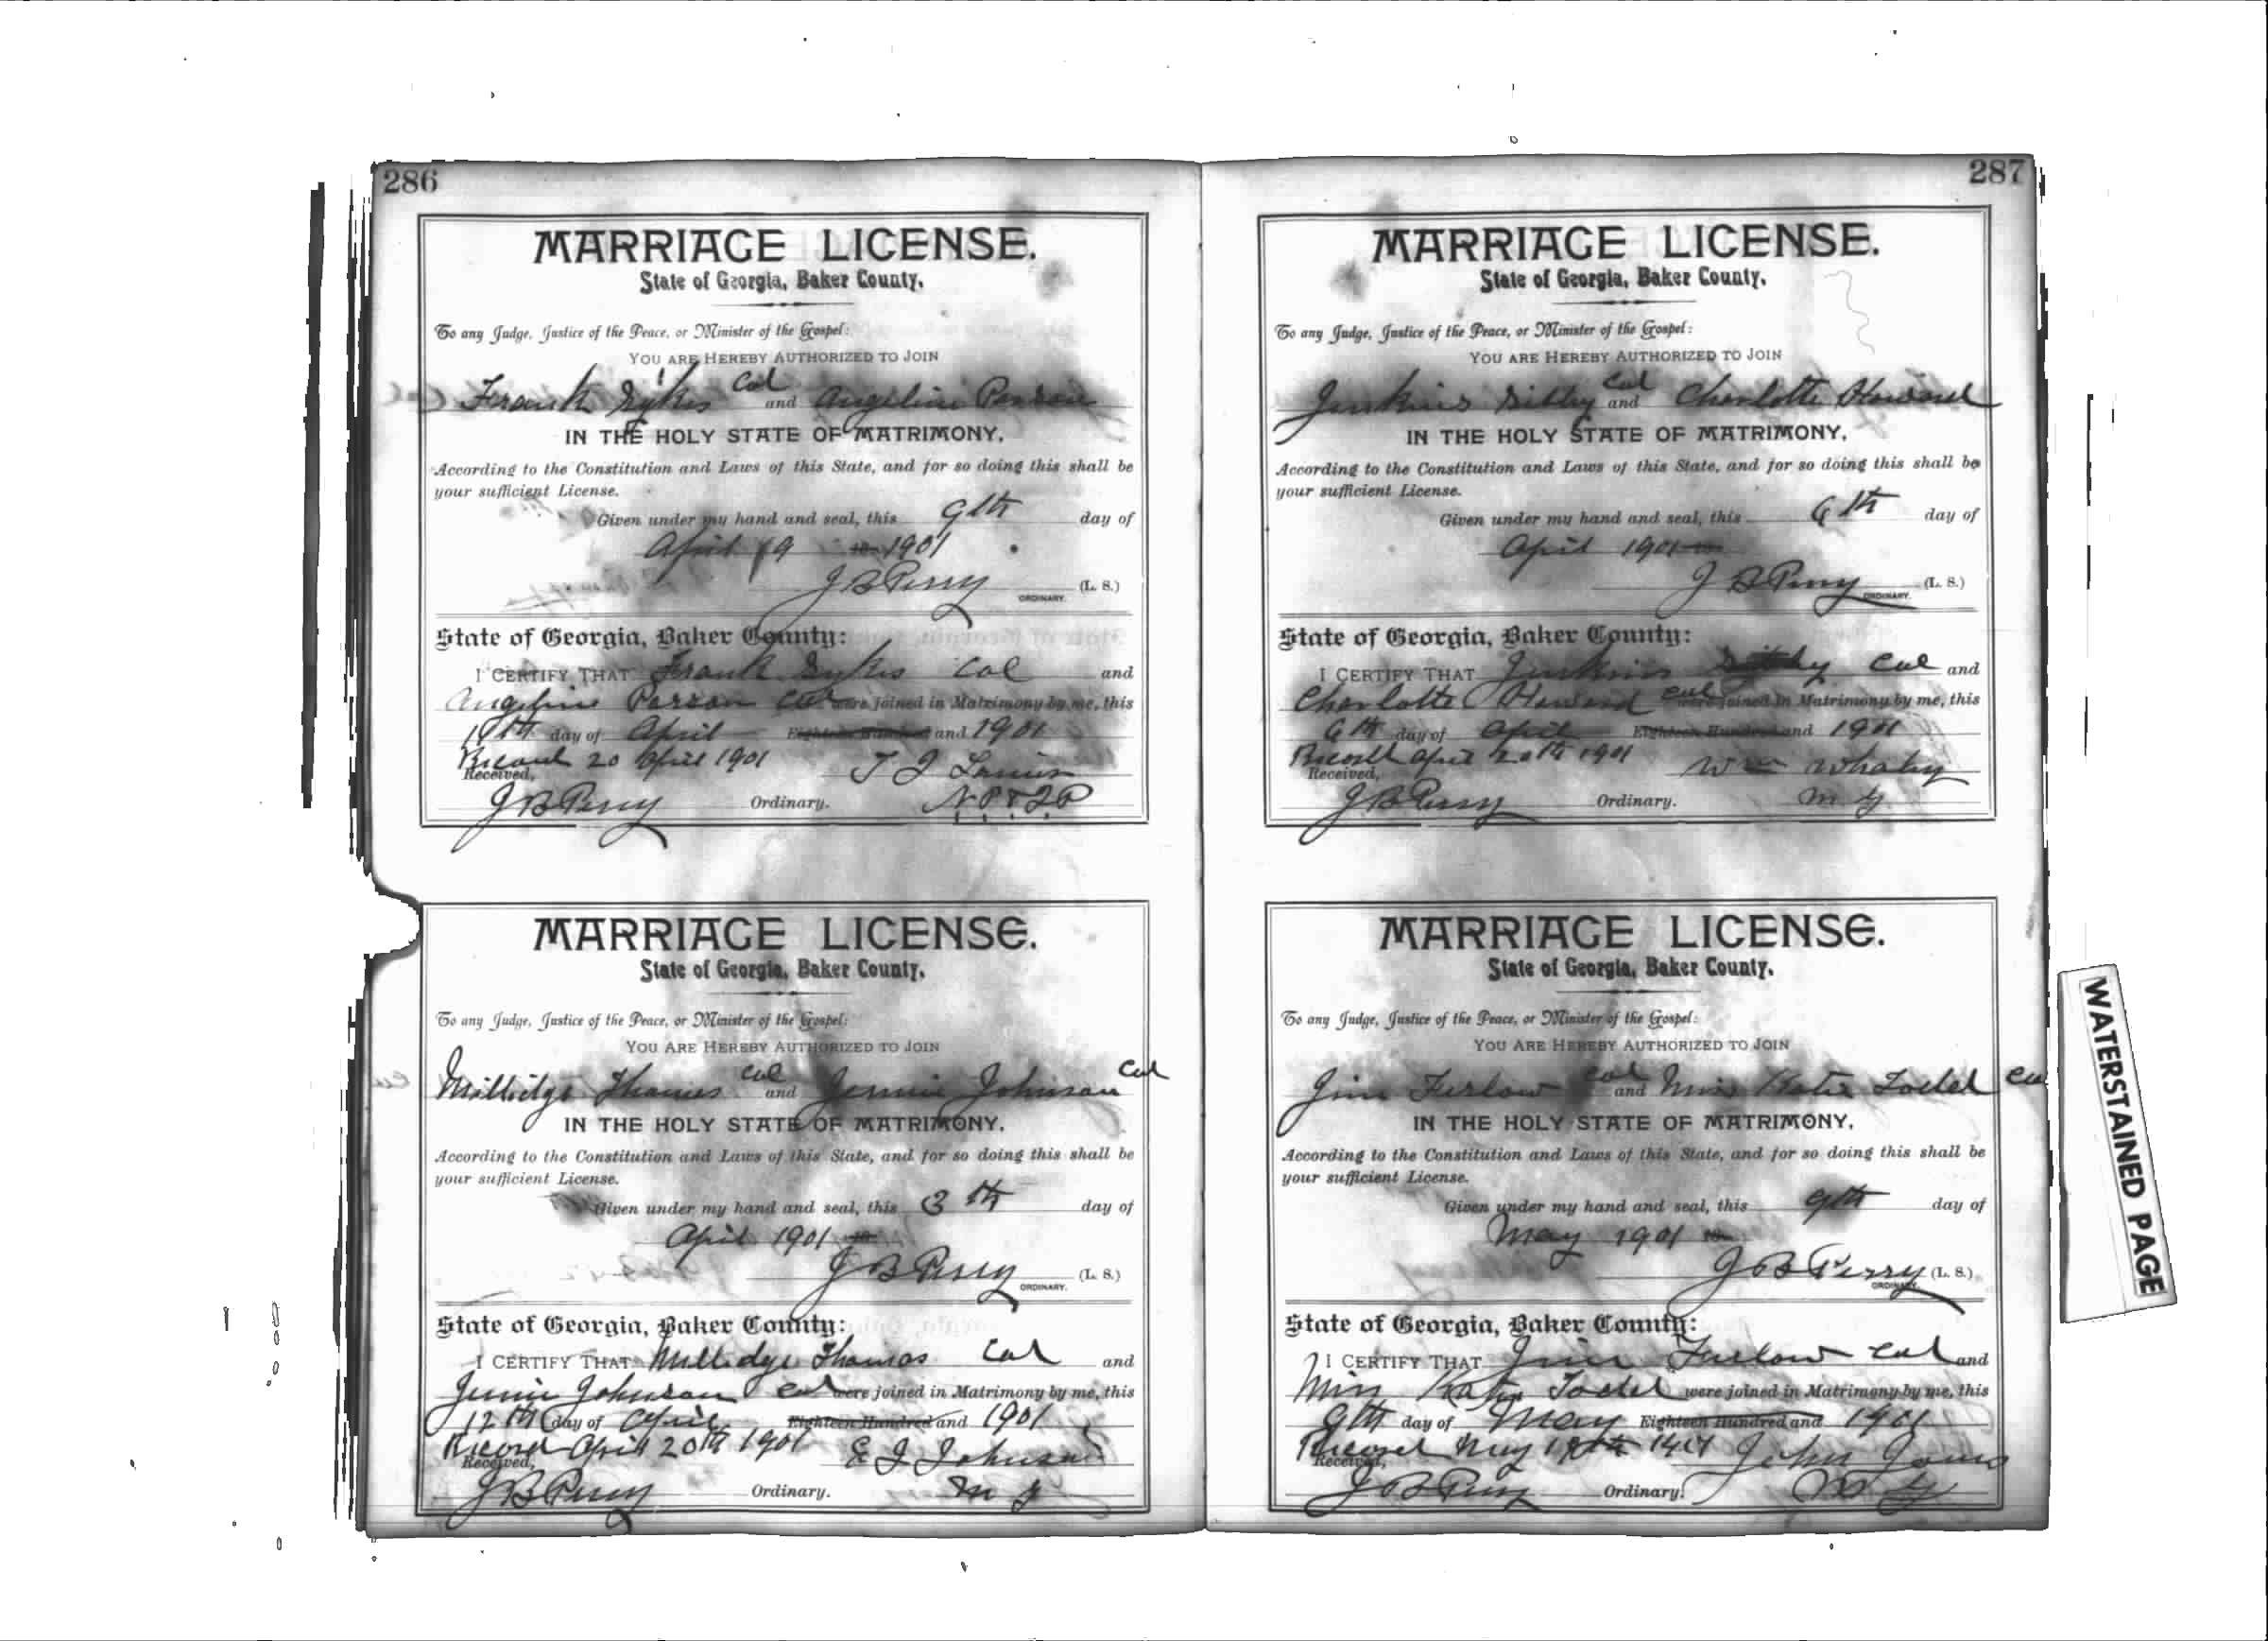 286
MARRIAGE LICENSE.
State of Georgia, Baker County.
To any Judge, Justice of the Peace, or Minister of the Gospel:
YOU ARE HEREBY AUTHORIZED TO JOIN
Frank Sykes Col and Angeline Parson
IN THE HOLY STATE OF MATRIMONY,
According to the Constitution and Laws of this State, and for so doing this shall be
your sufficient License.
Given under my hand and seal, this 9th day of
April 1901
J B Perry (L. S.)
ORDINARY.
State of Georgia, Baker County:
I CERTIFY THAT Frank Sykes Col and
Angeline Parson Col were joined in Matrimony by me, this
day of April Eighteen Hundred and 1901
Record 20 April 1901 T J
Received,
J B Perry Ordinary. N P & J P
MARRIAGE LICENSE.
State of Georgia, Baker County.
To any Judge, Justice of the Peace, or Minister of the Gospel:
YOU ARE HEREBY AUTHORIZED TO JOIN
Millidge Thomas Col and Jennie Johnson Col
IN THE HOLY STATE OF MATRIMONY,
According to the Constitution and Laws of this State, and for so doing this shall be
your sufficient License.
Given under my hand and seal, this 3th day of
April 1901
J B Perry (L. S.)
ORDINARY.
State of Georgia, Baker County:
I CERTIFY THAT Millidge Thomas Col and
Jennie Johnson Col were joined in Matrimony by me, this
12th day of April Eighteen Hundred and 1901
Record April 20th 1901 E J Johnson
Received,
J B Perry Ordinary. M G
287
MARRIAGE LICENSE.
State of Georgia, Baker County.
To any Judge, Justice of the Peace, or Minister of the Gospel:
YOU ARE HEREBY AUTHORIZED TO JOIN
Jenkins Sibby Col and Charlotte Howard
IN THE HOLY STATE OF MATRIMONY,
According to the Constitution and Laws of this State, and for so doing this shall be
your sufficient License.
Given under my hand and seal, this 6th day of
April 1901
J B Perry (L. S.)
ORDINARY.
State of Georgia, Baker County:
I CERTIFY THAT Jenkins Col and
Charlotte Howard Col were joined in Matrimony by me, this
6th day of April Eighteen Hundred and 1901
Record April 20th 1901 Wm Whaley
Received,
J B Perry Ordinary. M G
MARRIAGE LICENSE.
State of Georgia, Baker County.
To any Judge, Justice of the Peace, or Minister of the Gospel:
YOU ARE HEREBY AUTHORIZED TO JOIN
Jim Furlow Col and Miss Katie Col
IN THE HOLY STATE OF MATRIMONY,
According to the Constitution and Laws of this State, and for so doing this shall be
your sufficient License.
Given under my hand and seal, this 9th day of
May 1901
J B Perry (L. S.)
ORDINARY.
State of Georgia, Baker County:
I CERTIFY THAT Jim Furlow Col and
Miss Katie were joined in Matrimony by me, this
9th day of May Eighteen Hundred and 1901
Record May John Jones
Received,
J B Perry Ordinary. M G
WATERSTAINED PAGE